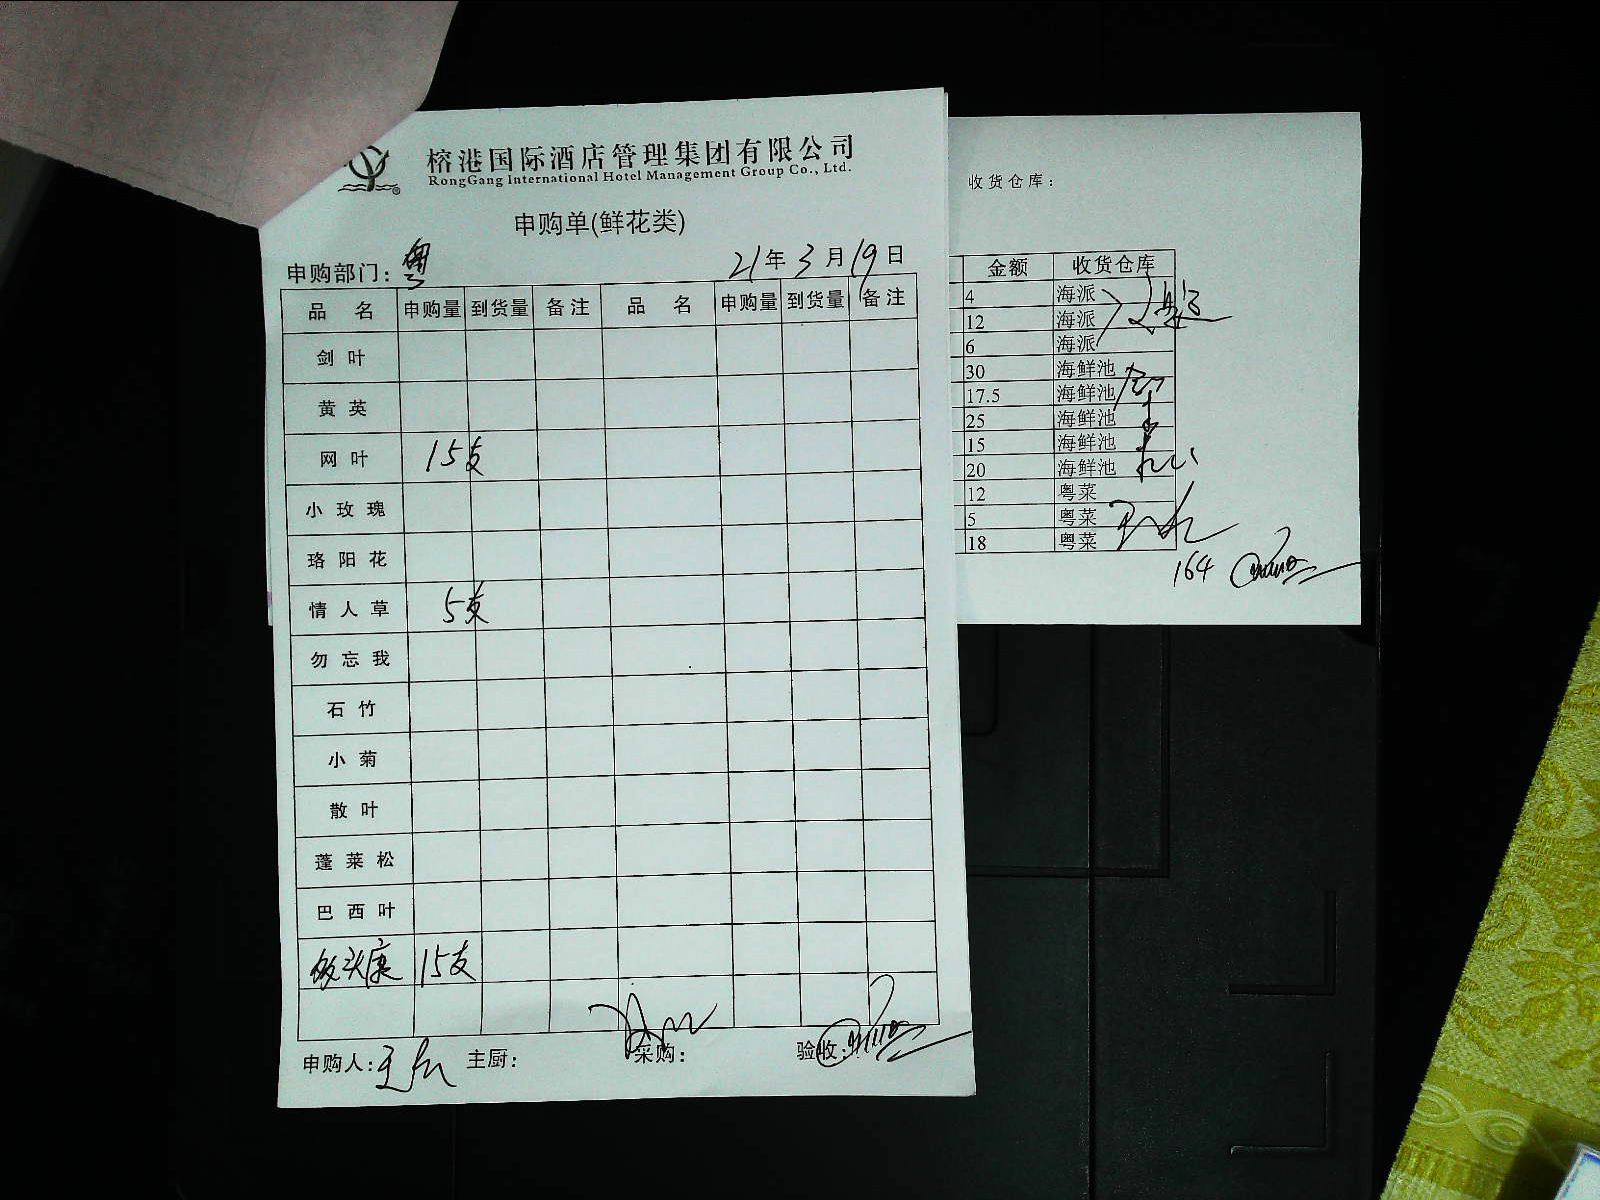 榕港国际酒店管理集团有限公司
RongGang International Hotel Management Group Co., Ltd.
申购单(鲜花类)
申购部门：粤 21年3月19日
品名 申购量 到货量 备注 品名 申购量 到货量 备注
剑叶
黄英
网叶 15支
小玫瑰
珞阳花
情人草 5支
勿忘我
石竹
小菊
散叶
蓬莱松
巴西叶
15支
申购人： 主厨： 采购： 验收：
收货仓库：
金额 收货仓库
4 海派
12 海派
6 海派
30 海鲜池
17.5 海鲜池
25 海鲜池
15 海鲜池
20 海鲜池
12 粤菜
5 粤菜
18 粤菜
164